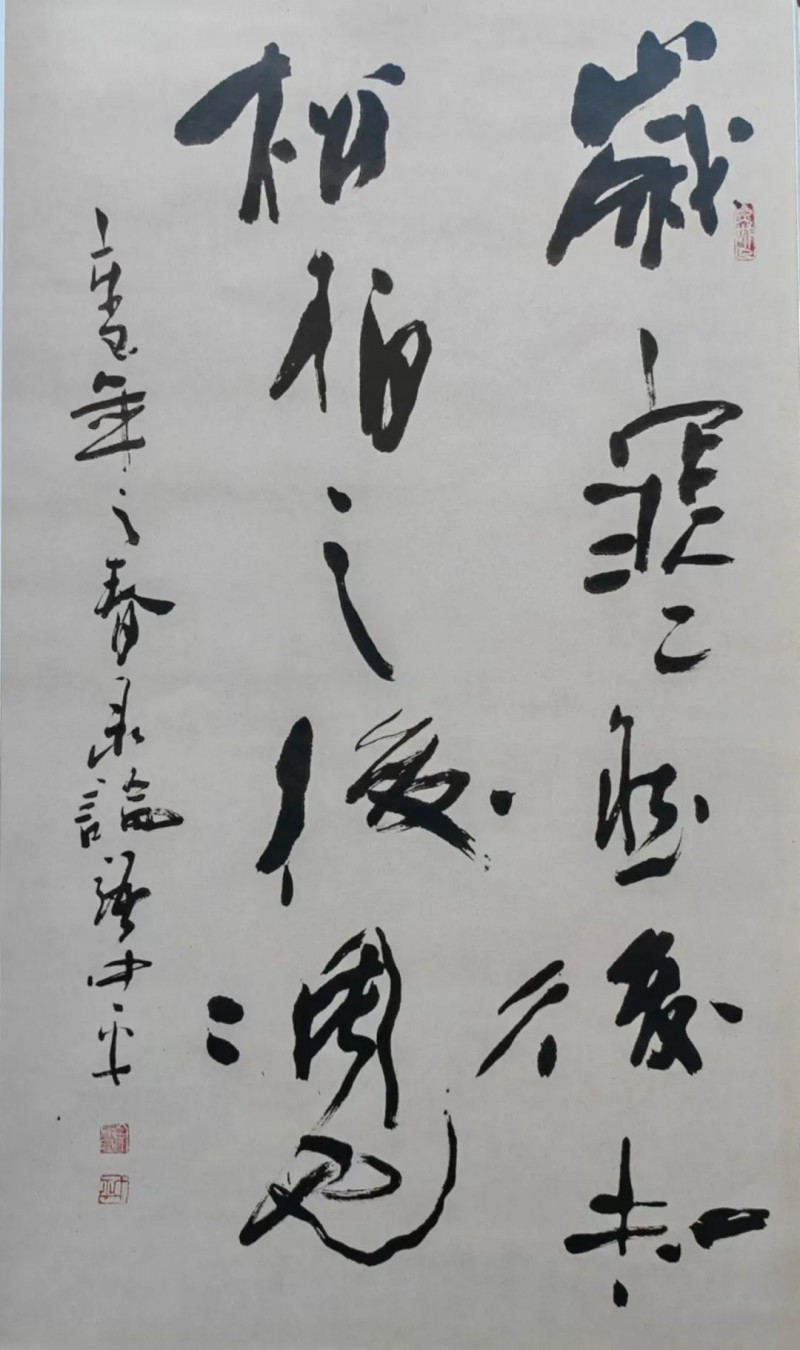 歲寒然後知
松柏之後凋也
辛丑年之春录論語中平